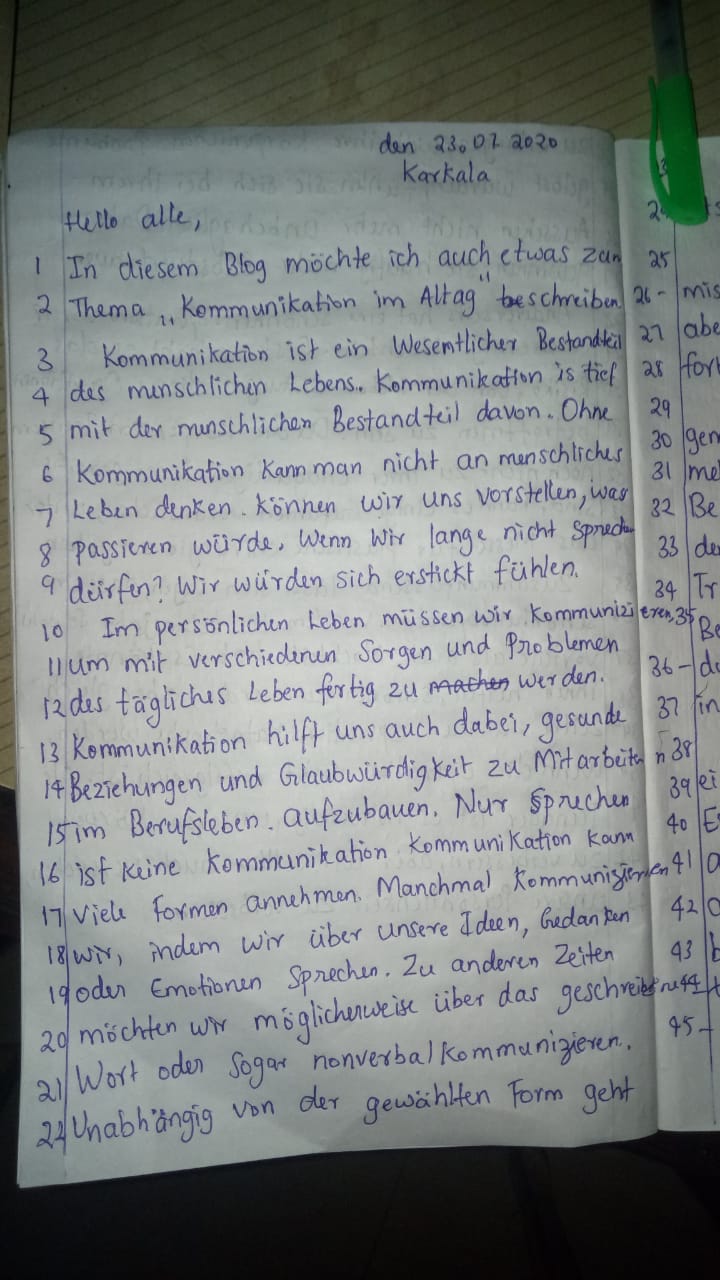 den 23.07 2020
Karkala
Hello alle,
1 In diesem Blog möchte ich auch etwas zum
2 Thema „Kommunikation im Altag" beschreiben
3 Kommunikation ist ein Wesentlicher Bestandteil
4 des menschlichen Lebens. Kommunikation is tief
5 mit der menschlichen Bestandteil davon. Ohne
6 Kommunikation Kann man nicht an menschliches
7 Leben denken. Können wir uns vorstellen, was
8 passieren würde, Wenn Wir lange nicht Sprechen
9 dürfen? Wir würden sich erstickt fühlen.
10 Im persönlichen Leben müssen wir Kommunizieren,
11 um mit verschiedenen Sorgen und Problemen
12 des tägliches Leben fertig zu machen werden.
13 Kommunikation hilft uns auch dabei, gesunde
14 Beziehungen und Glaubwürdigkeit zu Mitarbeitern
15 im Berufsleben. aufzubauen. Nur Sprechen
16 ist Keine Kommunikation. Kommunikation Kann
17 Viele Formen annehmen. Manchmal Kommunizieren
18 wir, indem wir über unsere Ideen, Gedanken
19 oder Emotionen Sprechen. Zu anderen Zeiten
20 möchten wir möglicherweise über das geschreibene
21 Wort oder Sogar nonverbal Kommunizieren.
22 Unabhängig von der gewählten Form geht
25
26 - mis
27 abe
28 for
29
30 gen
31 me
32 Be
33 de
34 Tr
35 Be
36 - de
37 in
38
39 ei
40 E
41 a
42
43 b
44
45